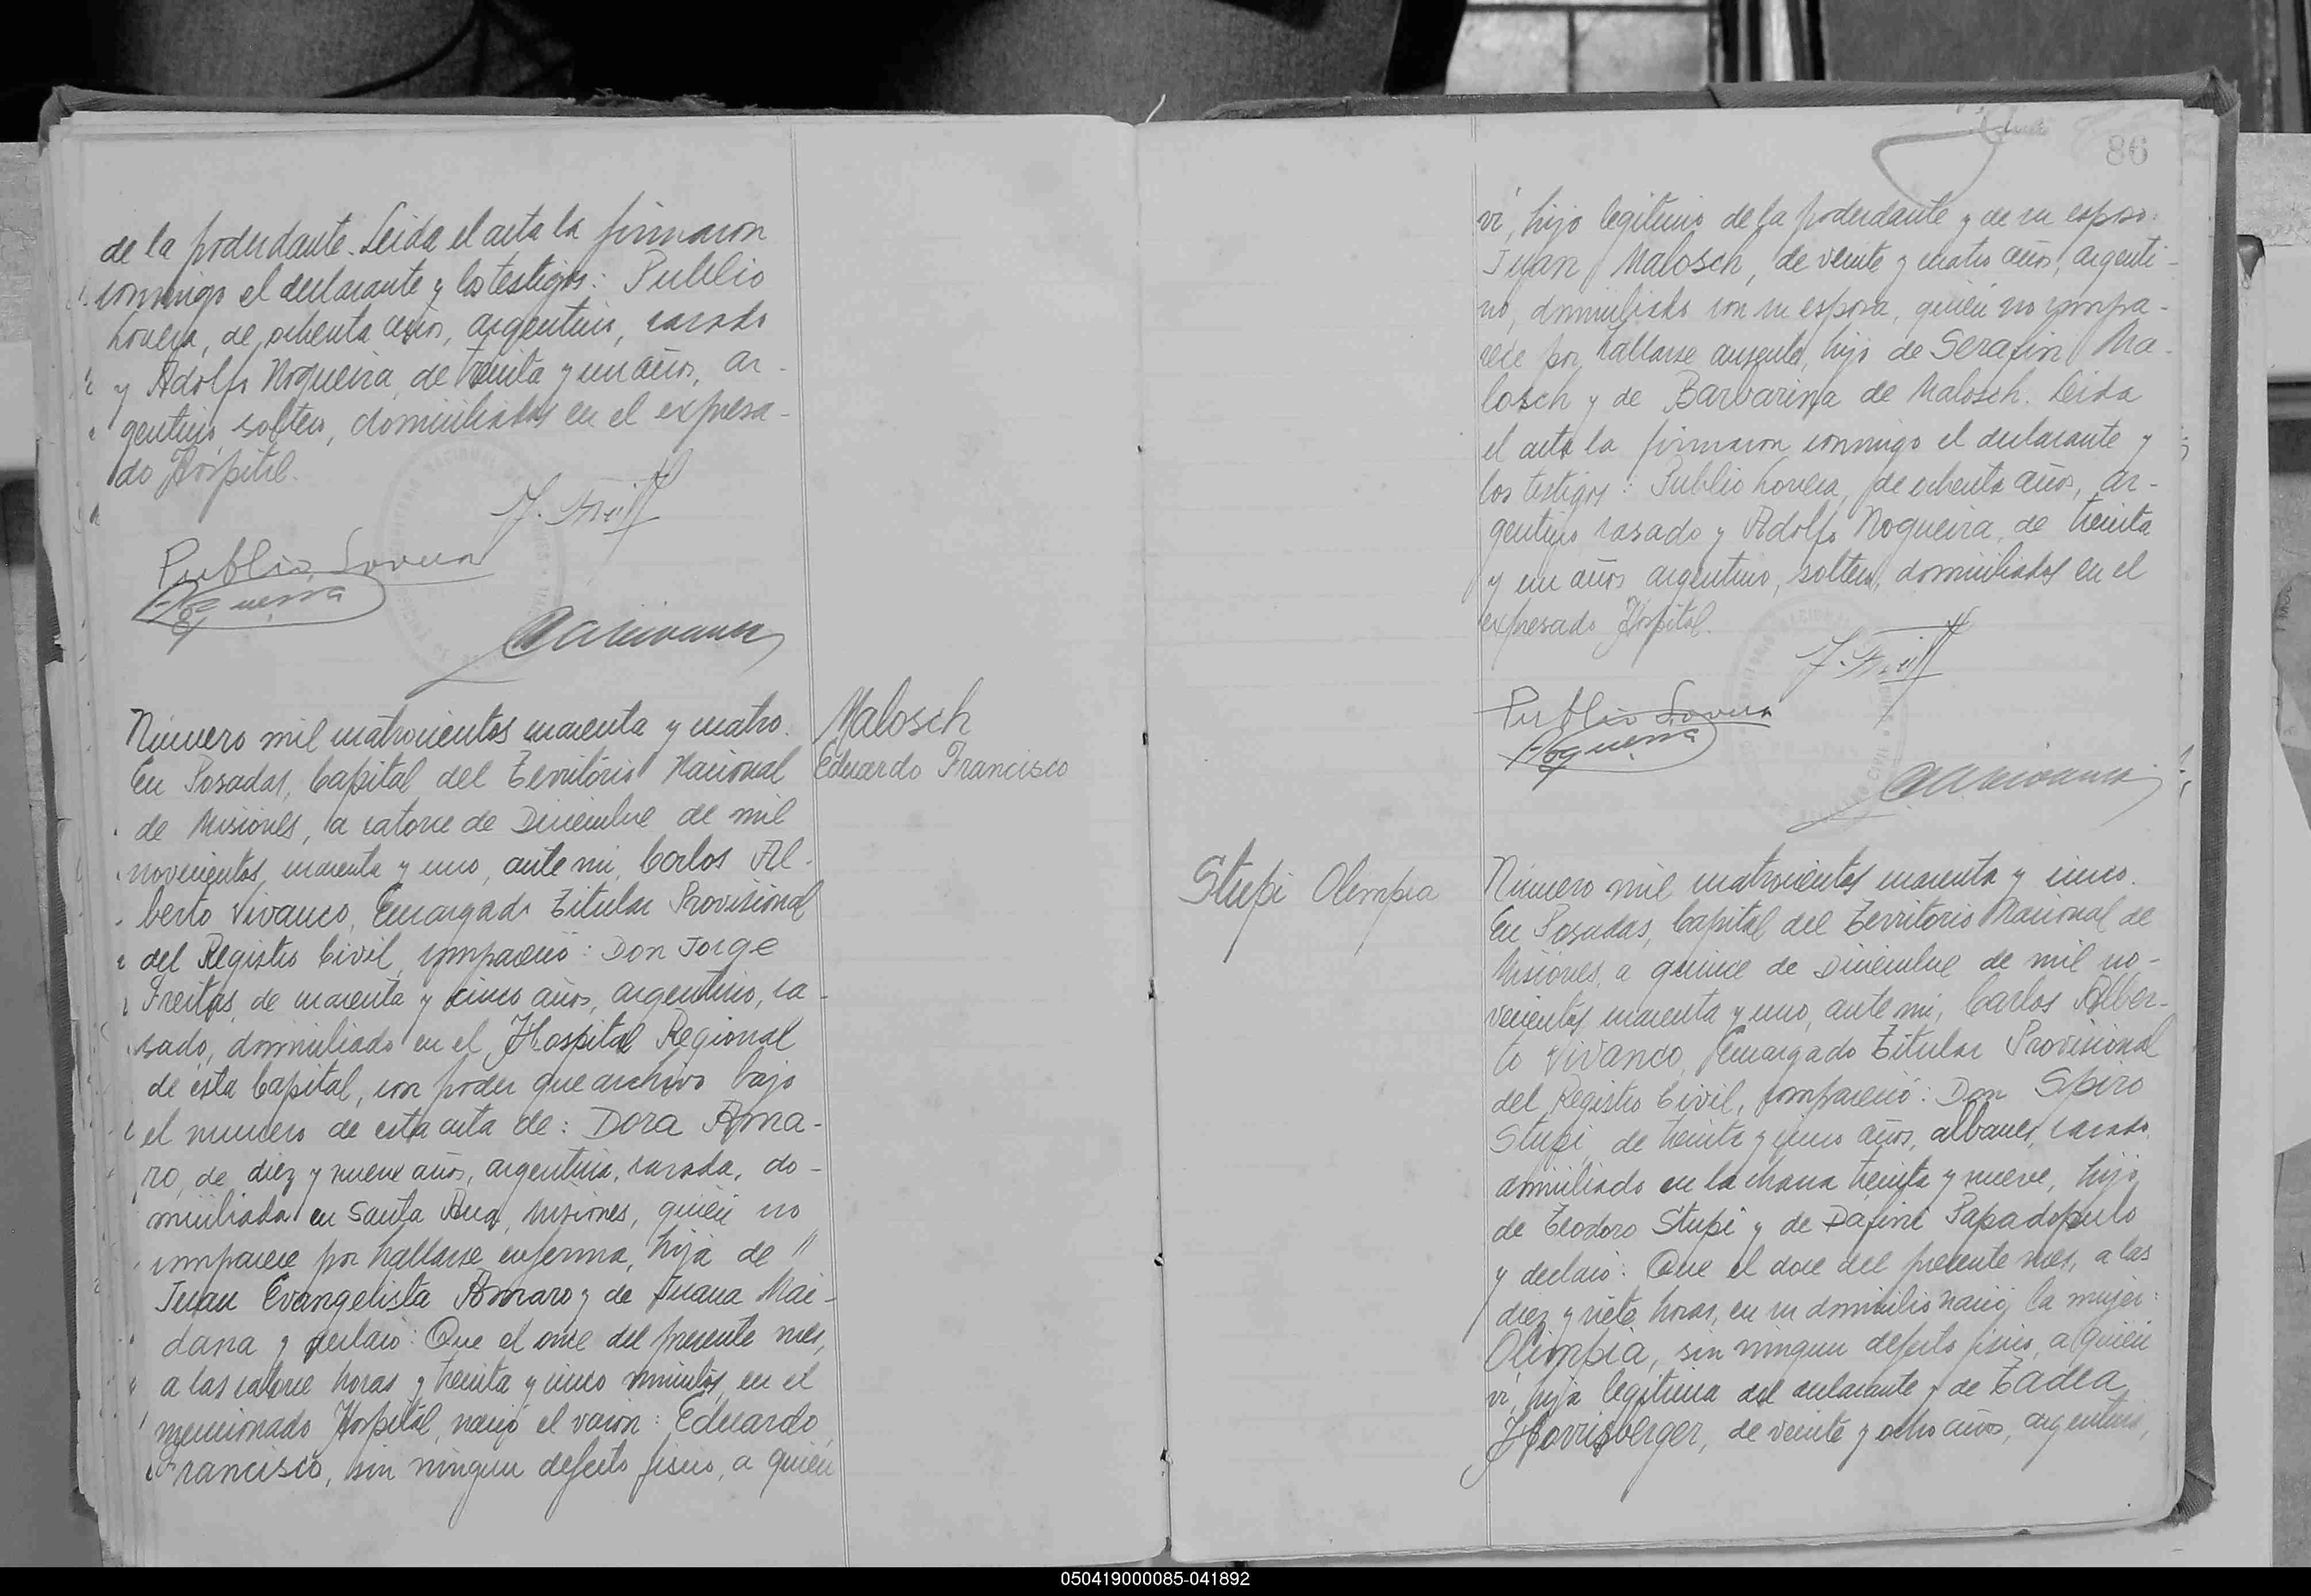 de la poderdante. Leida el acta la firmaron
conmigo el declarante y los testigos: Publio
Lovera, de ochenta años, argentino, casado
y Adolfo Nogueira, de treinta y un años, ar-
gentino, soltero, domiciliados en el expresa-
do Hospital.
Publio Lovera
ANogueira
Número mil cuatrocientos cuarenta y cuatro.
En Posadas, Capital del Territorio Nacional
de Misiones, a catorce de Diciembre de mil
novecientos cuarenta y uno, ante mi, Carlos Al-
berto Vivanco, Encargado Titular Provisional
del Registro Civil, compareció: Don Jorge
Freitas, de cuarenta y cinco años, argentino, ca-
sado, domiciliado en el Hospital Regional
de ésta Capital, con poder que archivo bajo
el numero de esta acta de: Dora Ama-
ro, de diez y nueve años, argentina, casada, do-
miciliada en Santa Ana, Misiones, quién no
comparece por hallarse enferma, hija de "
Juan Evangelista Amaro y de Juana Mai-
dana y declaró: Que el once del presente mes,
a las catorce horas y treinta y cinco minutos, en el
mencionado Hospital, nació el varón: Eduardo
Francisco, sin ningun defecto fisico, a quién
Malosch
Eduardo Francisco
86
vi, hijo legitimo de la poderdante y de su esposo:
Juan Malosch, de veinte y cuatro años, argenti-
no, domiciliado con su esposa, quién no compa-
rece por hallarse ausente, hijo de Serafin Ma-
losch y de Barbarina de Malosch. Leida
el acta la firmaron conmigo el declarante y
los testigos: Publio Lovera, de ochenta años, ar-
gentino casado y Adolfo Nogueira, de treinta
y un años argentino, soltero, domiciliados en el
expresado Hospital.
Publio Lovera
ANogueira
Stupi Olimpia
Número mil cuatrocientos cuarenta y cinco.
En Posadas, Capital del Territorio Nacional de
Misiones, a quince de Diciembre de mil no-
vecientos cuarenta y uno, ante mi, Carlos Alber-
to Vivanco, Encargado Titular Provisional
del Registro Civil, compareció: Don Spiro
Stupi, de treinta y cinco años, albanes, casado,
domiciliado en la chacra treinta y nueve, hijo
de Teodoro Stupi y de Dafini Papadopulo
y declaró: Que el doce del presente mes, a las
diez y siete horas, en su domicilio nació, la mujer:
Olimpia, sin ningun defecto fisico, a quién
vi, hija legitima del declarante y de Tadea
Horrisberger, de veinte y ocho años, argentina,
050419000085-041892